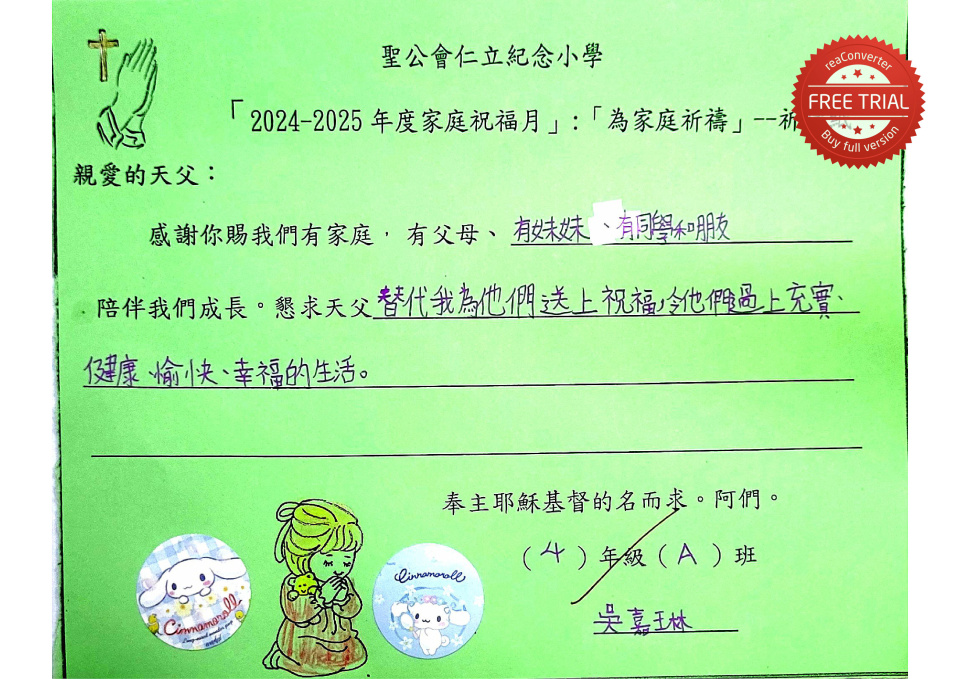 聖公會仁立紀念小學
reaConverter
FREE TRIAL
Buy full version
「2024-2025 年度家庭祝福月」:「為家庭祈禱」--祈
親愛的天父：
感謝你賜我們有家庭，有父母、有妹妹、有同學和朋友
陪伴我們成長。懇求天父替代我為他們送上祝福,令他們過上充實、
健康、愉快、幸福的生活。
奉主耶穌基督的名而求。阿們。
(4)年級(A)班
吳嘉琳
Cinnamoroll
Cinnamoroll